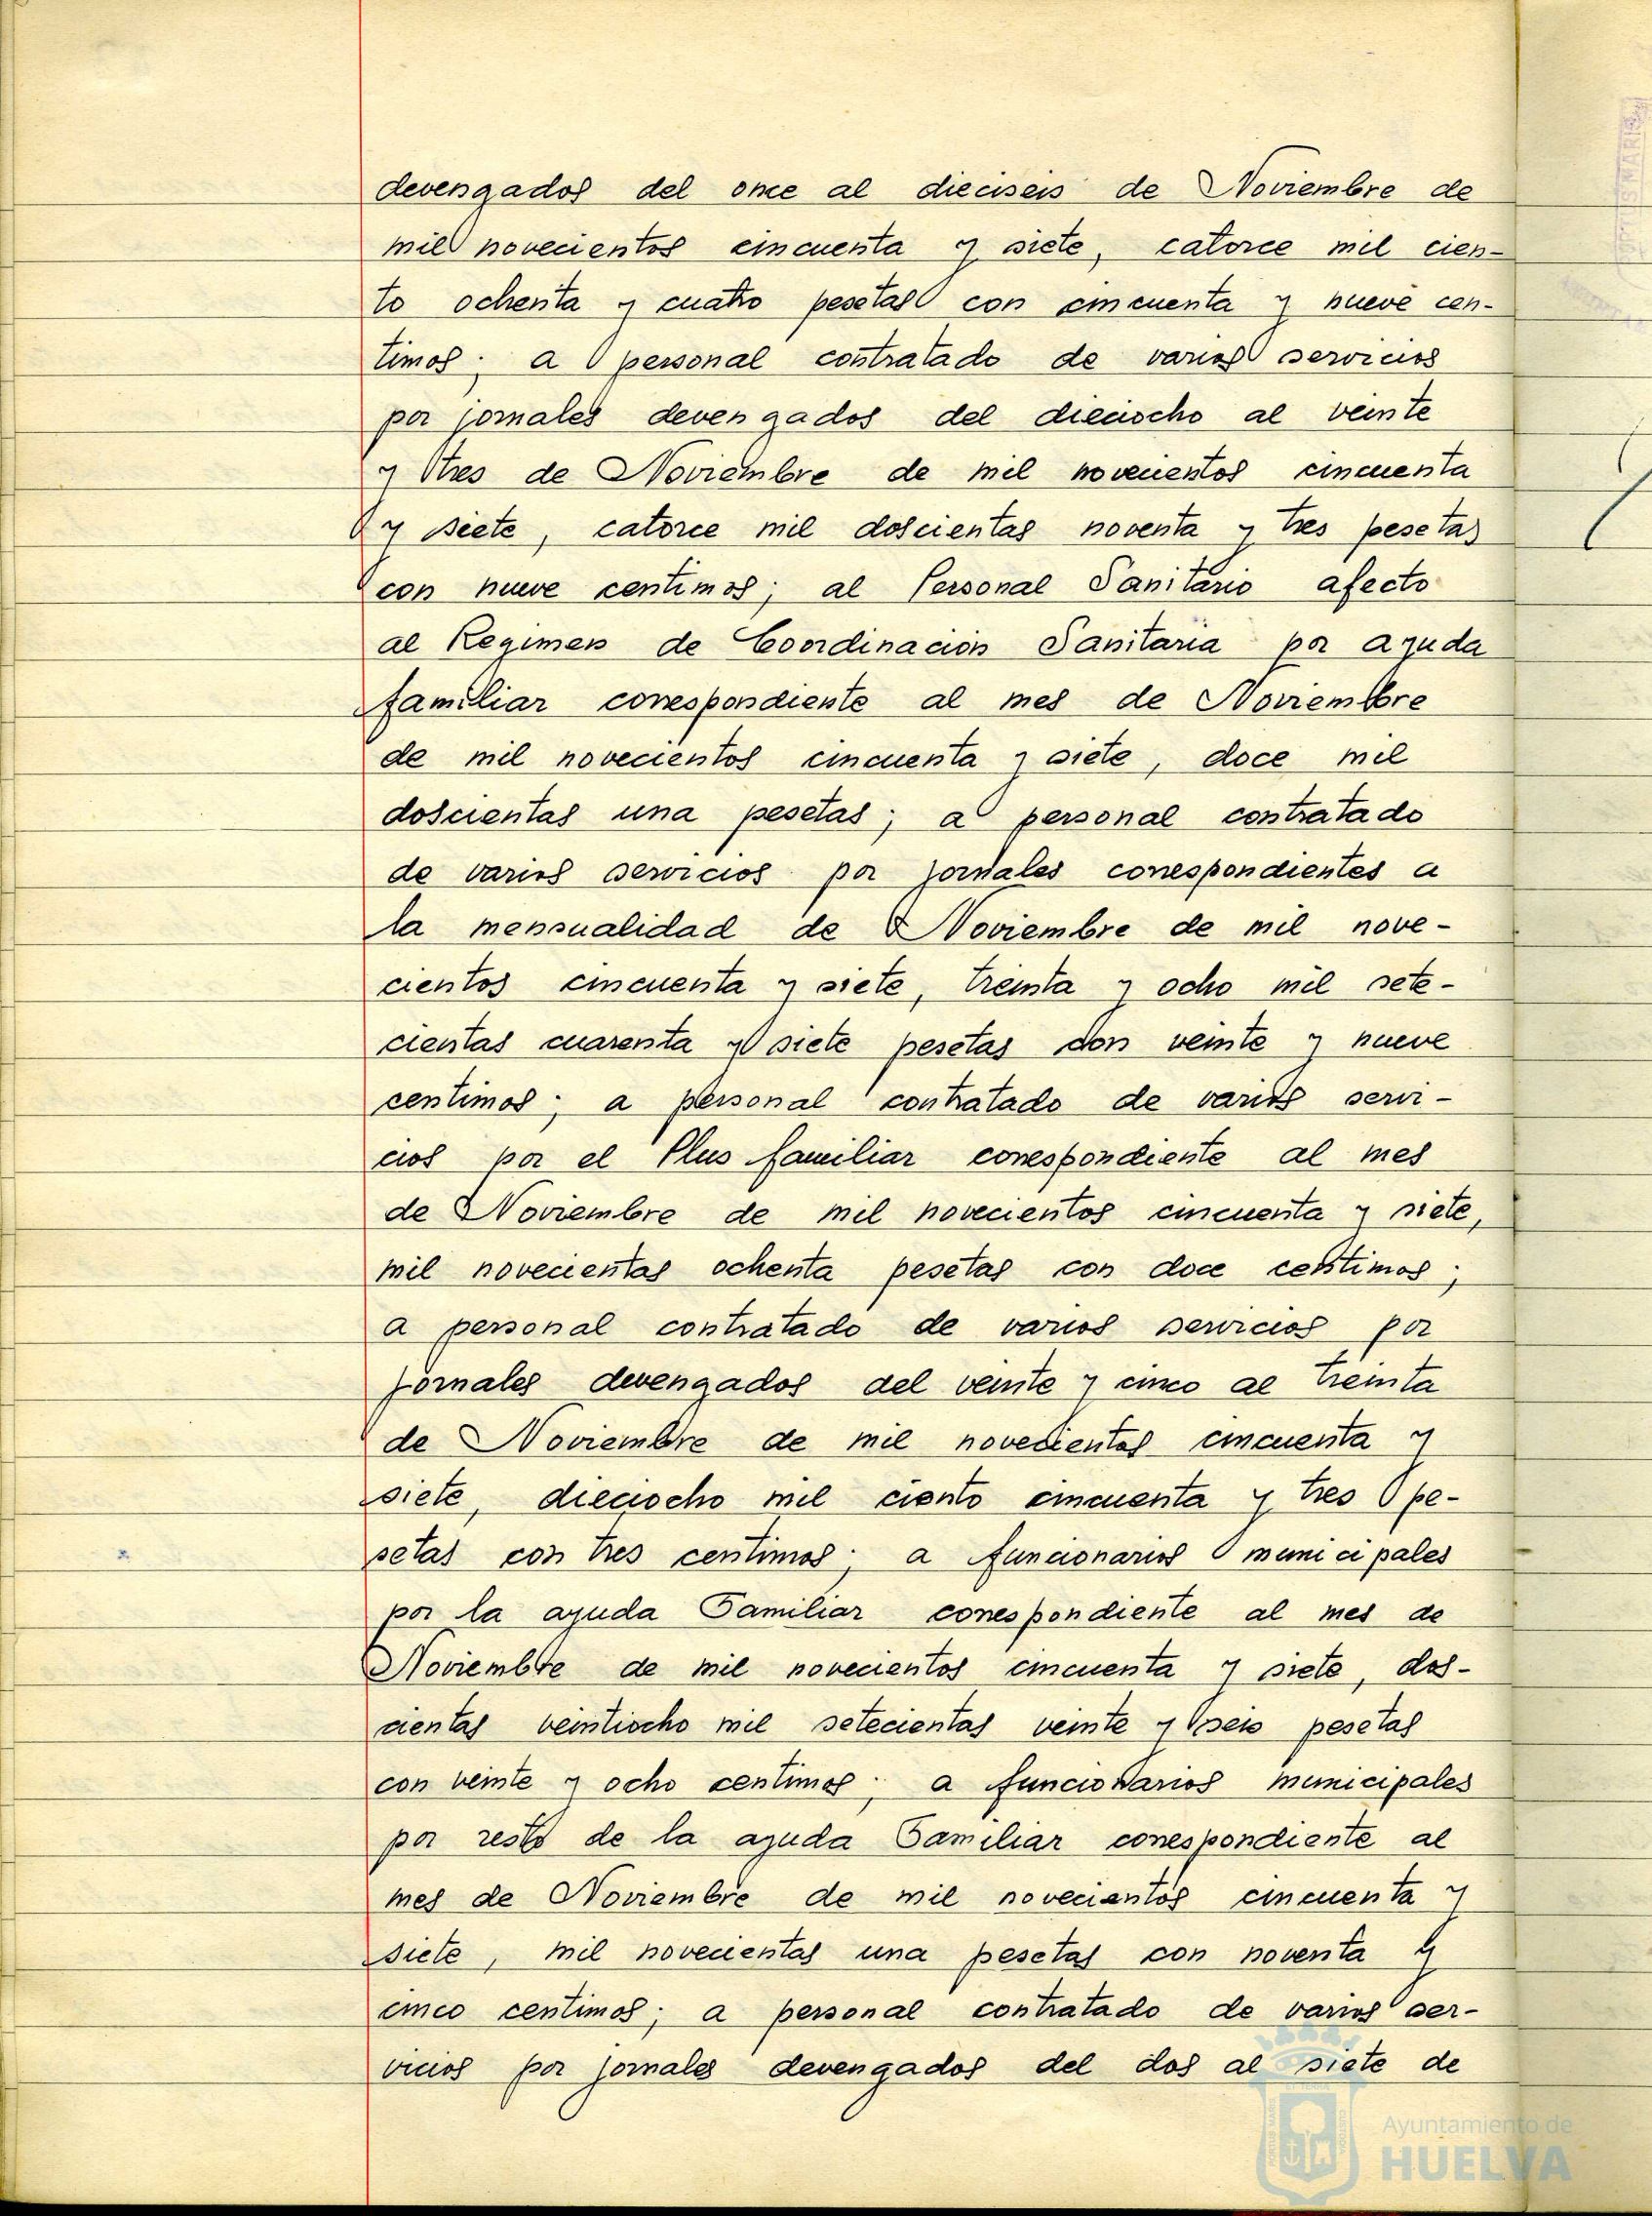 devengados del once al dieciseis de Noviembre de
mil novecientos cincuenta y siete, catorce mil cien-
to ochenta y cuatro pesetas con cincuenta y nueve cen-
timos; a personal contratado de varios servicios
por jornales devengados del dieciocho al veinte
y tres de Noviembre de mil novecientos cincuenta
y siete, catorce mil doscientas noventa y tres pesetas
con nueve centimos; al Personal Sanitario afecto
al Regimen de Coordinación Sanitaria por ayuda
familiar correspondiente al mes de Noviembre
de mil novecientos cincuenta y siete, doce mil
doscientas una pesetas; a personal contratado
de varios servicios por jornales correspondientes a
la mensualidad de Noviembre de mil nove-
cientos cincuenta y siete, treinta y ocho mil sete-
cientas cuarenta y siete pesetas con veinte y nueve
centimos; a personal contratado de varios servi-
cios por el Plus familiar correspondiente al mes
de Noviembre de mil novecientos cincuenta y siete,
mil novecientas ochenta pesetas con doce centimos;
a personal contratado de varios servicios por
jornales devengados del veinte y cinco al treinta
de Noviembre de mil novecientos cincuenta y
siete, dieciocho mil ciento cincuenta y tres pe-
setas con tres centimos; a funcionarios municipales
por la ayuda Familiar correspondiente al mes de
Noviembre de mil novecientos cincuenta y siete, dos-
cientas veintiocho mil setecientas veinte y seis pesetas
con veinte y ocho centimos; a funcionarios municipales
por resto de la ayuda Familiar correspondiente al
mes de Noviembre de mil novecientos cincuenta y
siete, mil novecientas una pesetas con noventa y
cinco centimos; a personal contratado de varios ser-
vicios por jornales devengados del dos al siete de
Ayuntamiento de
HUELVA